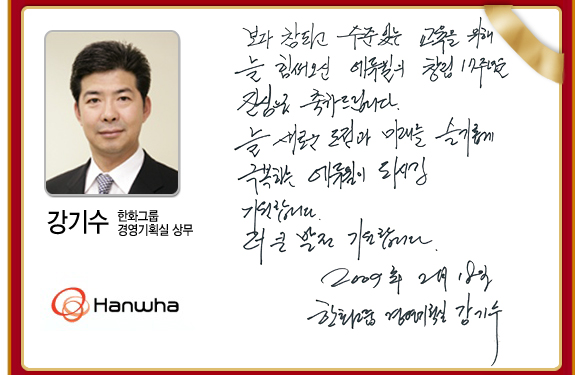 강기수
한화그룹
경영기획실 상무
Hanwha
보다 참되고 수준있는 교육을 위해
늘 힘써오신 에듀윌의 창립 17주년을
진심으로 축하드립니다.
늘 새로운 도전과 미래를 슬기롭게
극복하는 에듀윌이 되시길
기원합니다.
더 큰 발전 기원합니다.
2009年 2月 18일
한화그룹 경영기획실 강기수